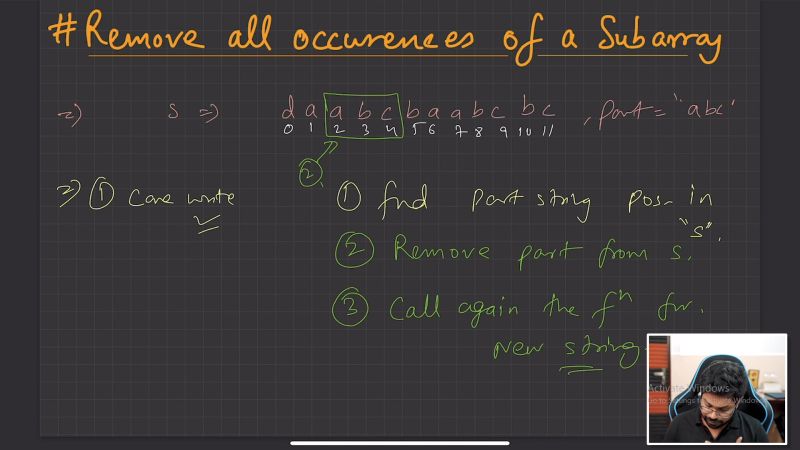 # Remove all occurences of a Subarray
=> s => d a a b c b a a b c b c , part = "abc"
0 1 2 3 4 5 6 7 8 9 10 11
②
=> ① Case write ① find part string pos. in "s".
② Remove part from s.
③ Call again the fⁿ for
New string
Activate Windows
Go to Settings to activate Windows